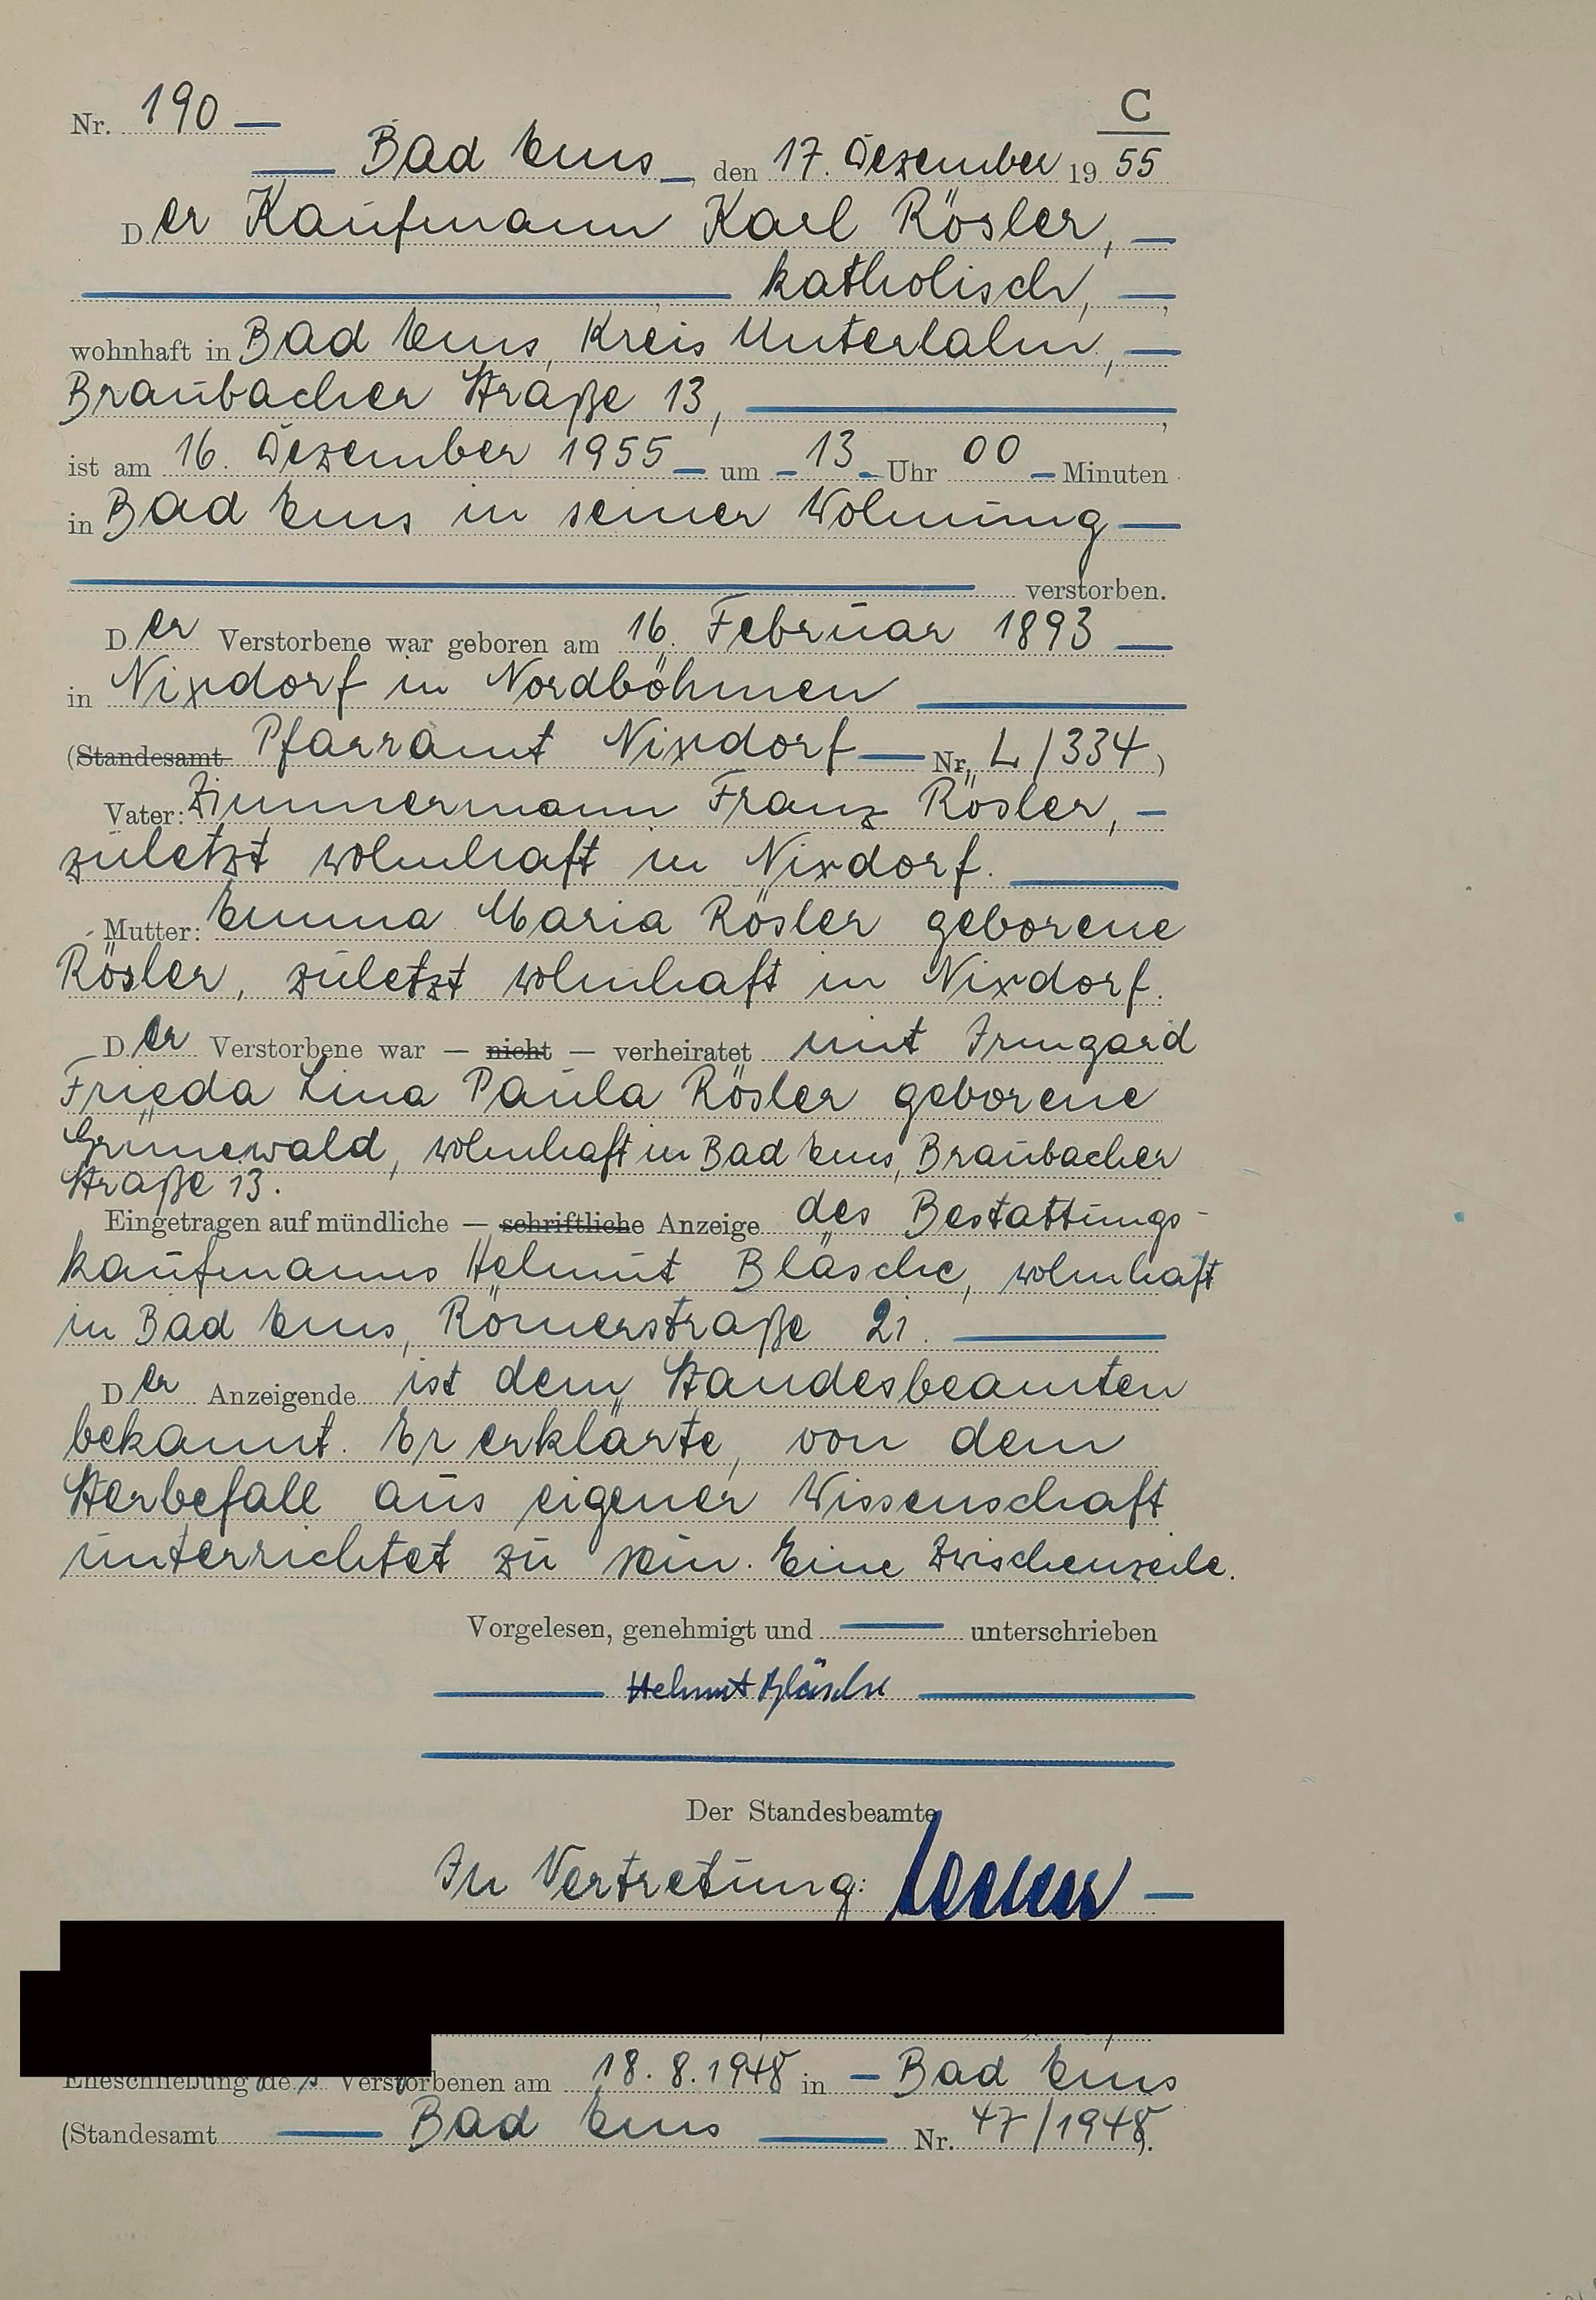 C
Nr. 190
Bad Ems, den 17. Dezember 19 55
Der Kaufmann Karl Rösler,
katholisch,
wohnhaft in Bad Ems, Kreis Unterlahn,
Braubacher Straße 13,
ist am 16. Dezember 1955 um 13 Uhr 00 Minuten
in Bad Ems in seiner Wohnung
verstorben.
Der Verstorbene war geboren am 16. Februar 1893
in Nixdorf in Nordböhmen
(Standesamt Pfarramt Nixdorf Nr. L/334)
Vater: Zimmermann Franz Rösler,
zuletzt wohnhaft in Nixdorf.
Mutter: Emma Maria Rösler geborene
Rösler, zuletzt wohnhaft in Nixdorf.
Der Verstorbene war — nicht — verheiratet mit Irmgard
Frieda Lina Paula Rösler geborene
Grünewald, wohnhaft in Bad Ems, Braubacher
Straße 13.
Eingetragen auf mündliche — schriftliche Anzeige des Bestattungs-
kaufmanns Helmut Bläsche, wohnhaft
in Bad Ems, Römerstraße 21.
Der Anzeigende ist dem Standesbeamten
bekannt. Er erklärte, von dem
Sterbefall aus eigener Wissenschaft
unterrichtet zu sein. Eine Zwischenzeile.
Vorgelesen, genehmigt und unterschrieben
Helmut Bläsche
Der Standesbeamte
In Vertretung:
Eheschließung des Verstorbenen am 18.8.1948 in Bad Ems
(Standesamt Bad Ems Nr. 47/1948).